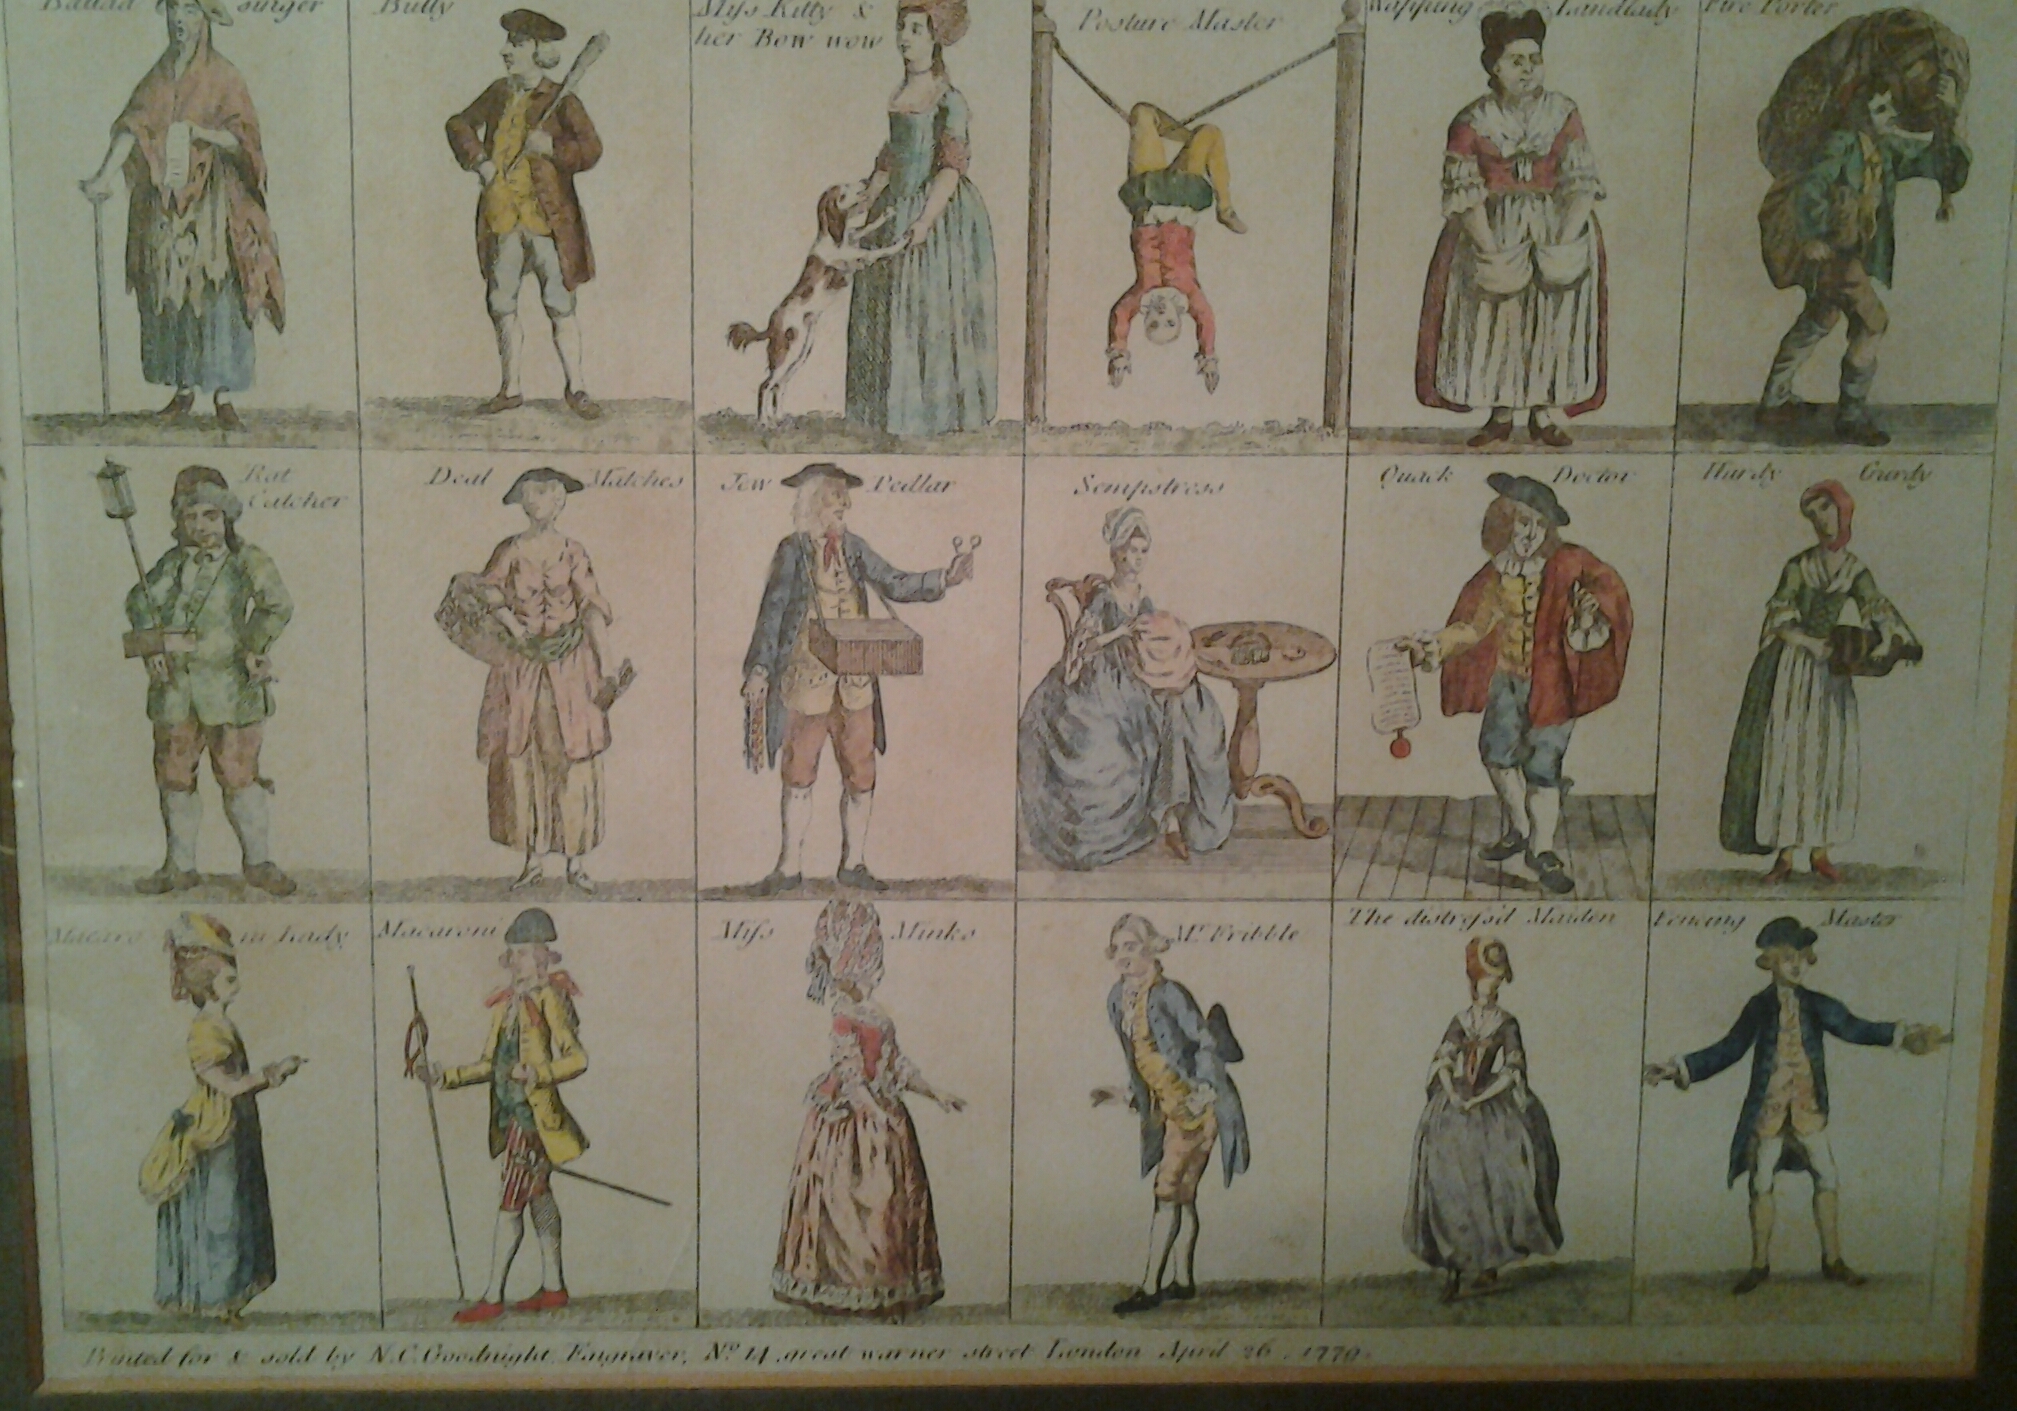 Ballad singer
Bully
Miss Kitty &
her Bow wow
Posture Master
Wapping Landlady
Fire Porter
Rat
Catcher
Deal Matches
Jew Pedlar
Sempstress
Quack Doctor
Hurdy Gurdy
Macaroni Lady
Macaroni
Miss Minks
Mr. Fribble
The distress'd Maiden
Fencing Master
Printed for & sold by N.C. Goodnight, Engraver, No. 14 great warner street London April 26. 1779.